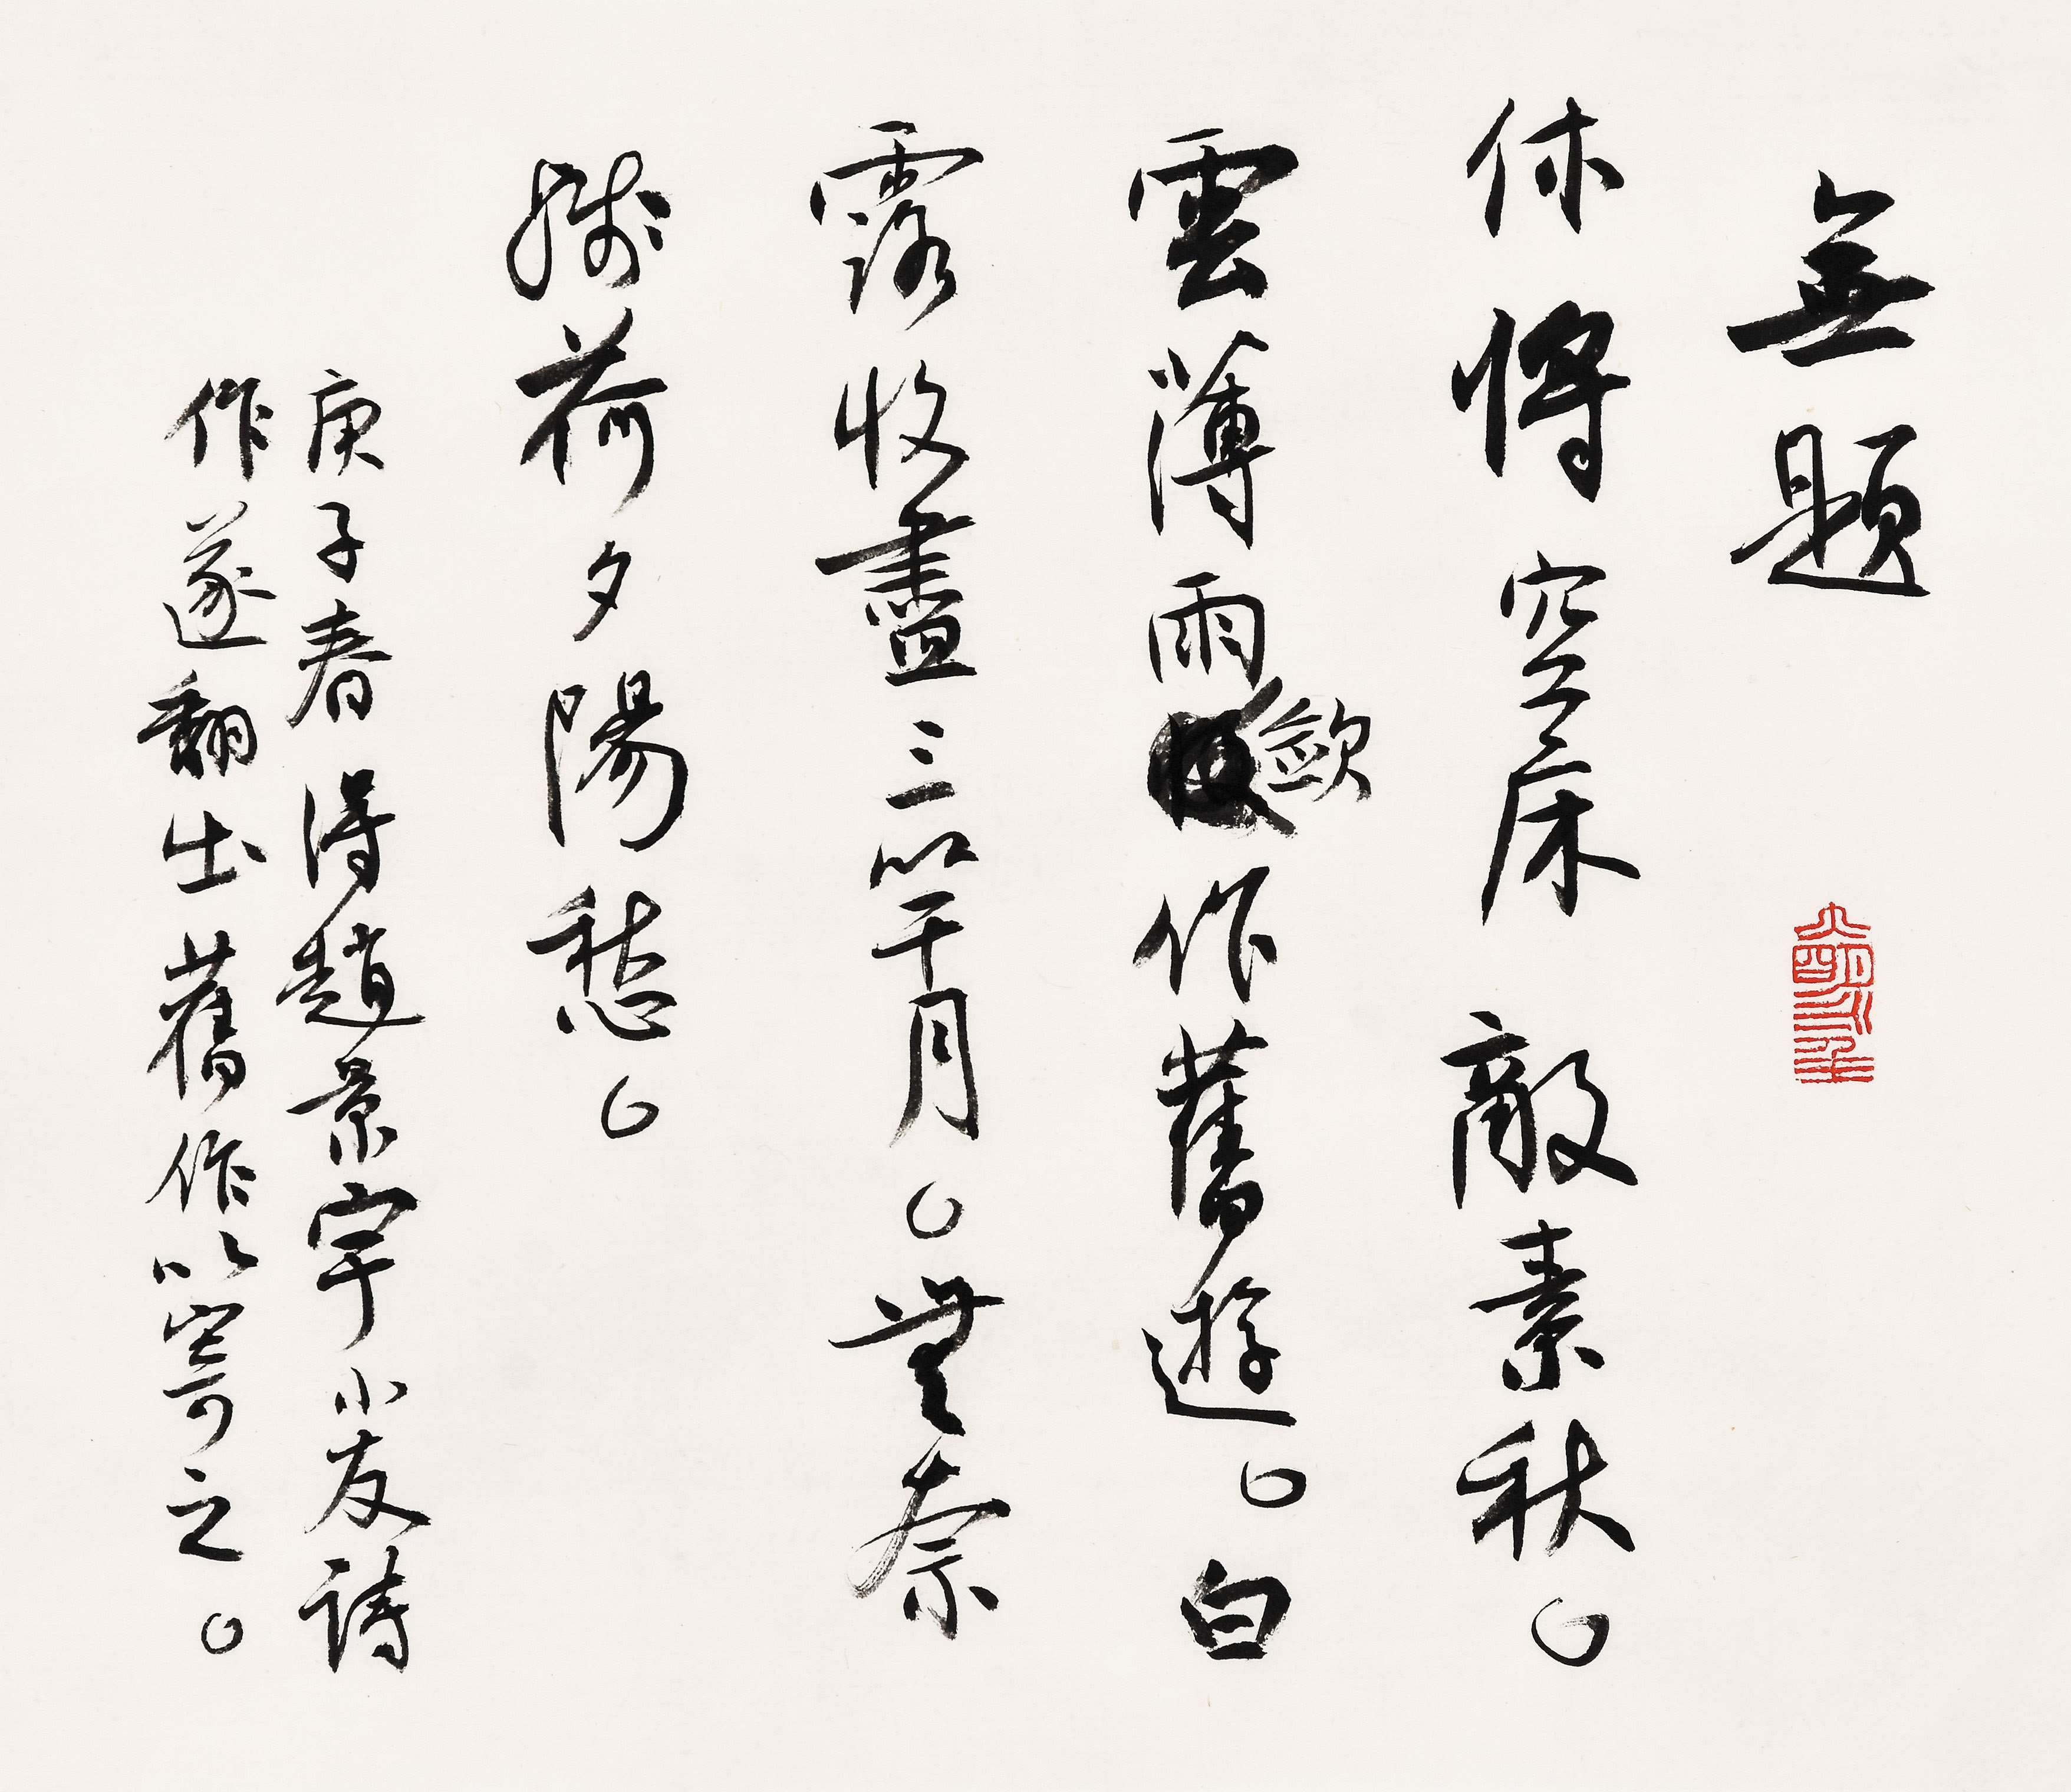 無題
休將空床敵素秋。
雲薄雨歛作舊遊。白
露收盡三竿月。無奈
殘荷夕陽愁。
庚子春得趙景宇小友詩
作遂翻出舊作以寄之。